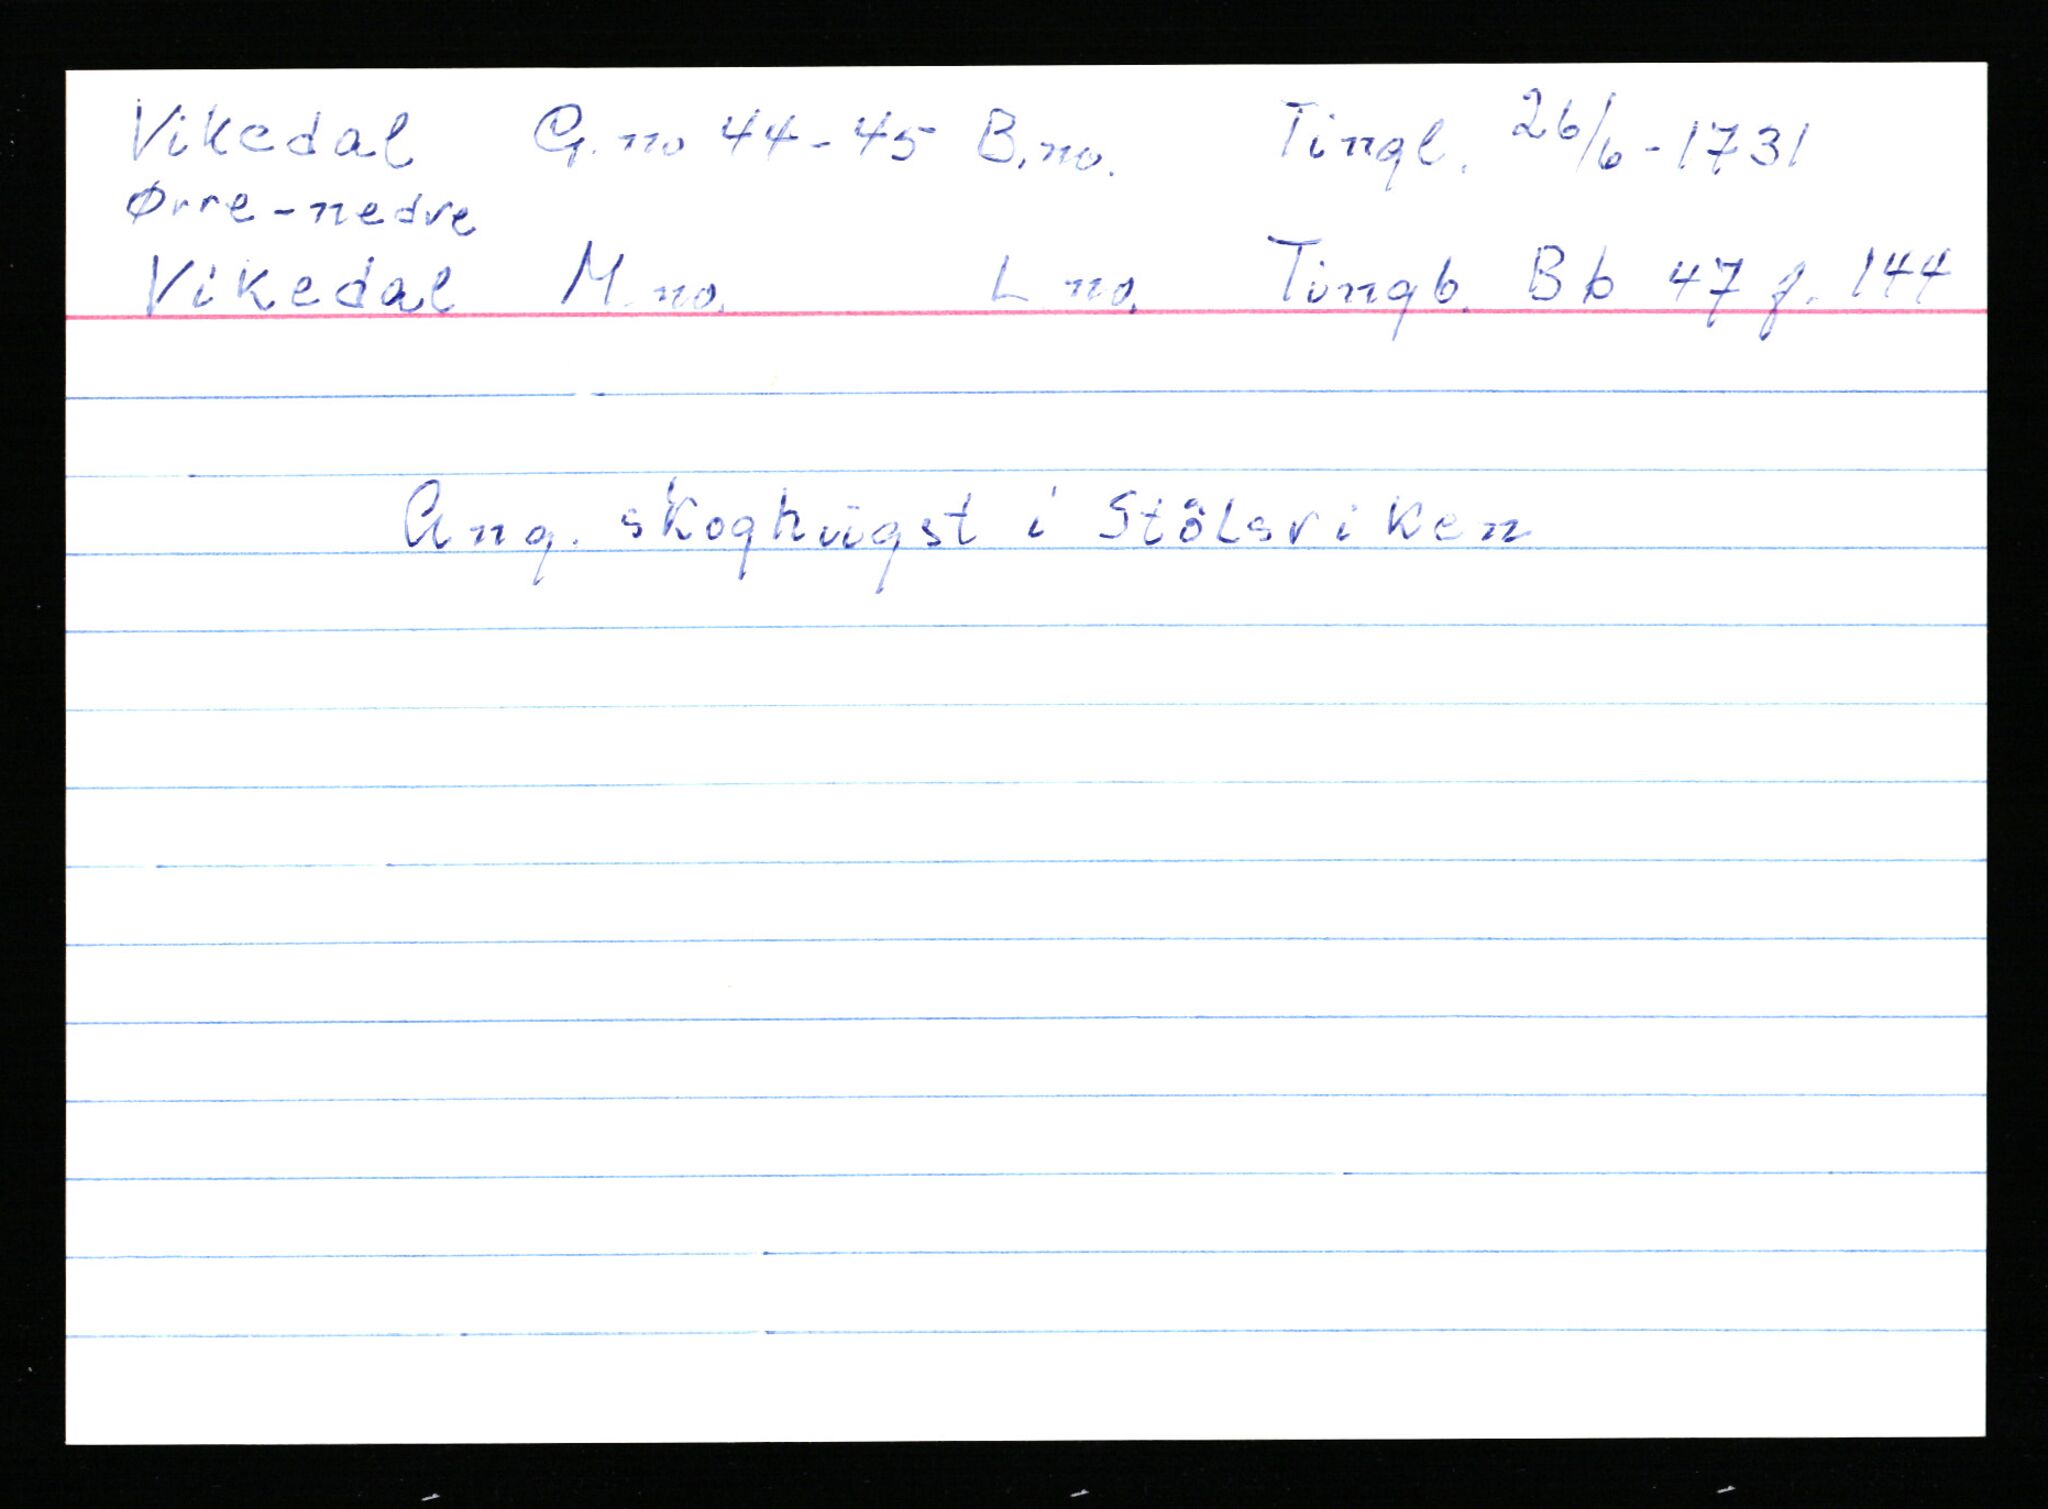 Vikedal G.no 44-45 B.no. Tingl. 26/6-1731
Ørre-nedre
Vikedal M.no. L no. Tingb. Bb 47 f. 144
Ang. skoghügst i Stölsviken